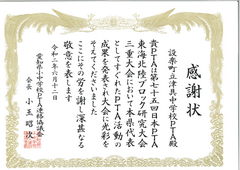 感謝状
設楽町立津具中学校PTA殿
貴PTAは第七十五回日本PTA
東海北陸ブロック研究大会
三重大会において本県代表
としてすぐれたPTA活動の
成果を発表され大会に光彩を
そえてくださいました
ここにその労を謝し深甚なる
敬意を表します
令和二年六月十二日
愛知県小中学校PTA連絡協議会
会長 小玉昭